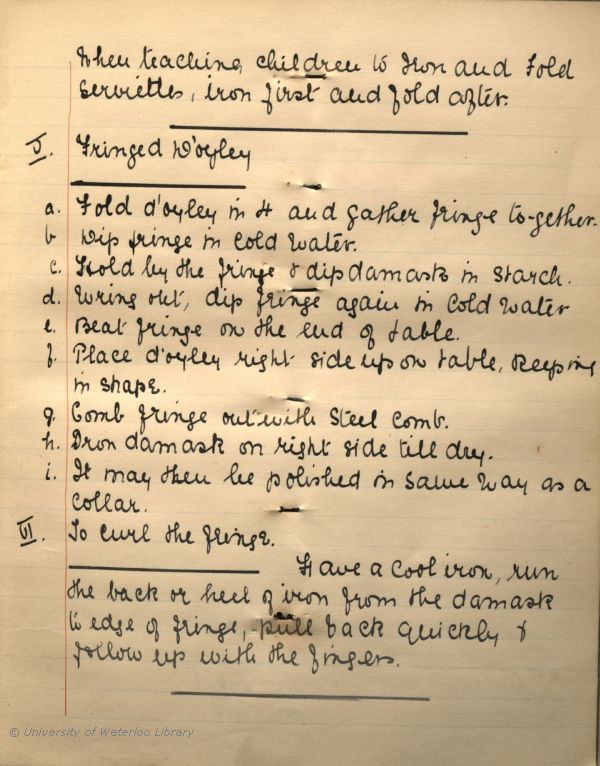 When teaching children to Iron and Fold
Serviettes, iron first and fold after.
V. Fringed D'oyley
a. Fold d'oyley in 4 and gather fringe to-gether.
b Dip fringe in Cold Water.
c. Hold by the fringe & dip damask in Starch.
d. Wring out, dip fringe again in Cold Water
e. Beat fringe on the end of table.
f. Place d'oyley right side up on table, Keeping
in shape.
g. Comb fringe out with Steel Comb.
h. Iron damask on right side till dry.
i. It may then be polished in Same Way as a
Collar.
VI. To Curl the fringe.
Have a Cool iron, run
the back or heel of iron from the damask
to edge of fringe, pull back quickly &
follow up with the fingers.
© University of Waterloo Library